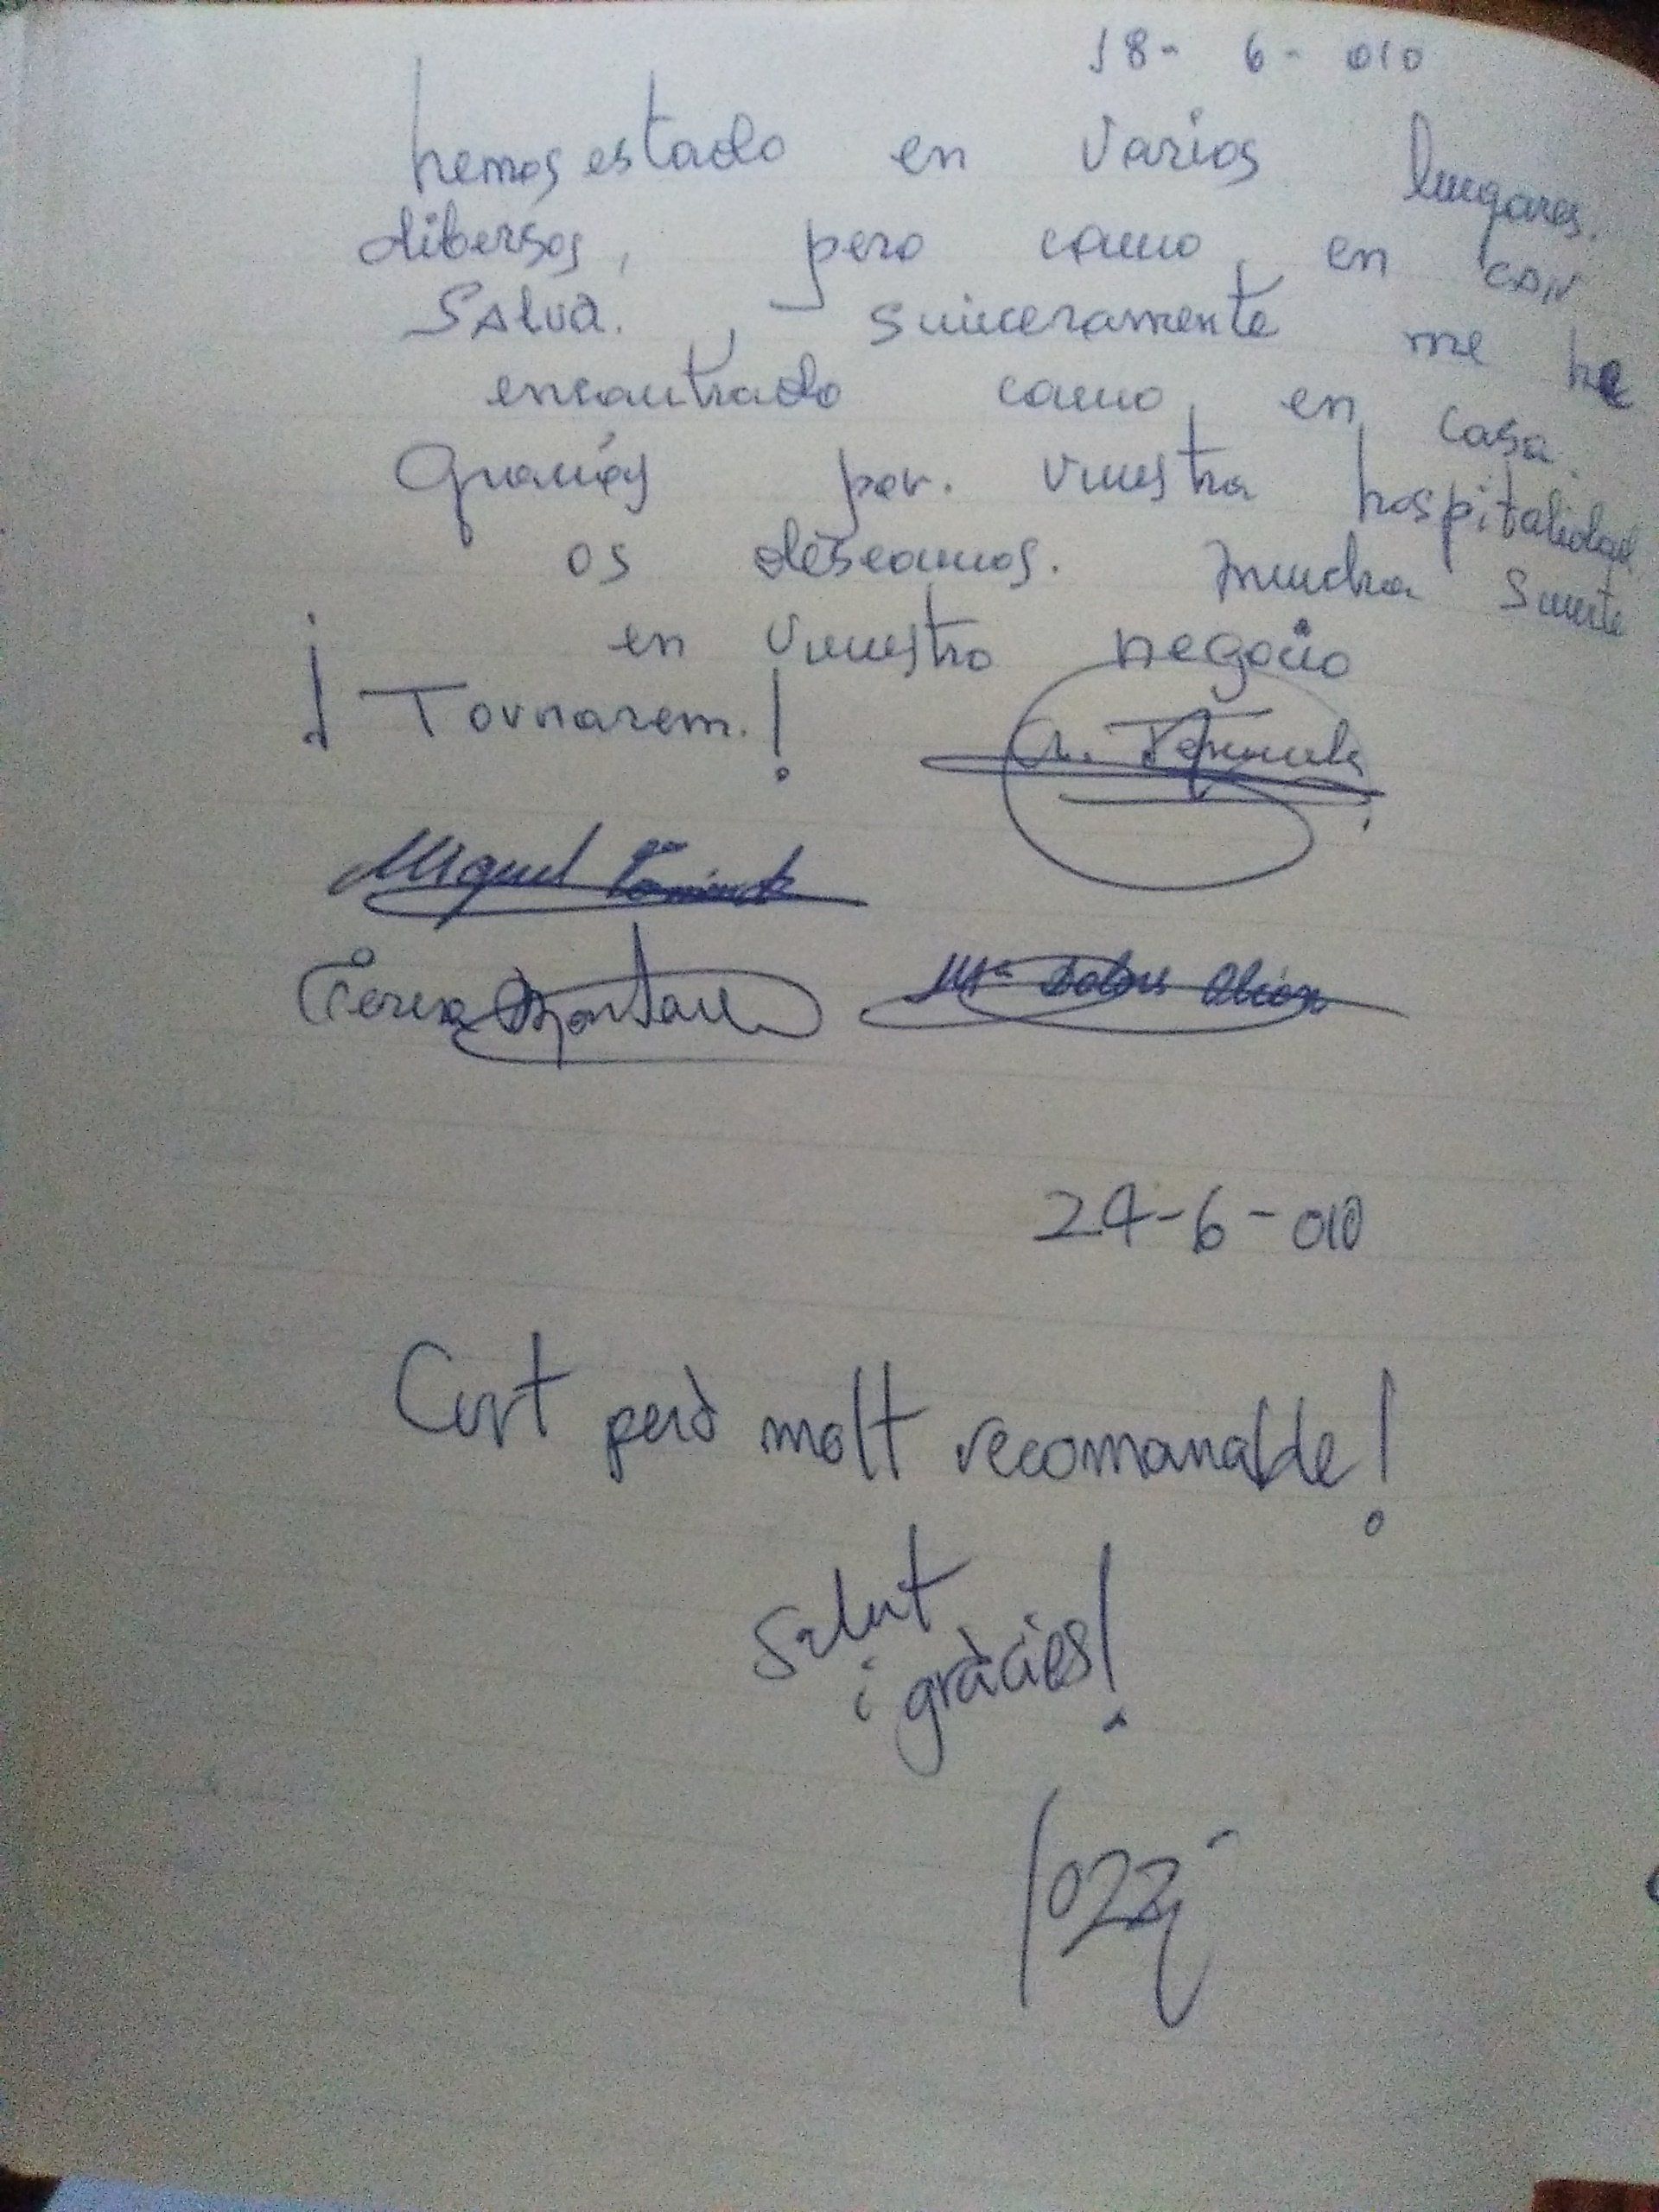 18- 6- 010
hemos estado en varios lungares.
dibersos, pero como en CAN
SAlva. , sinceramente me he
encontrado como en casa.
Gracias por. vuestra hospitalidad
os deseamos. mucha suerte
en vuestro negocio
¡Tornarem.!
Miquel
Mª Dolors
24-6-010
Curt però molt recomanable!
Salut
i gràcies!